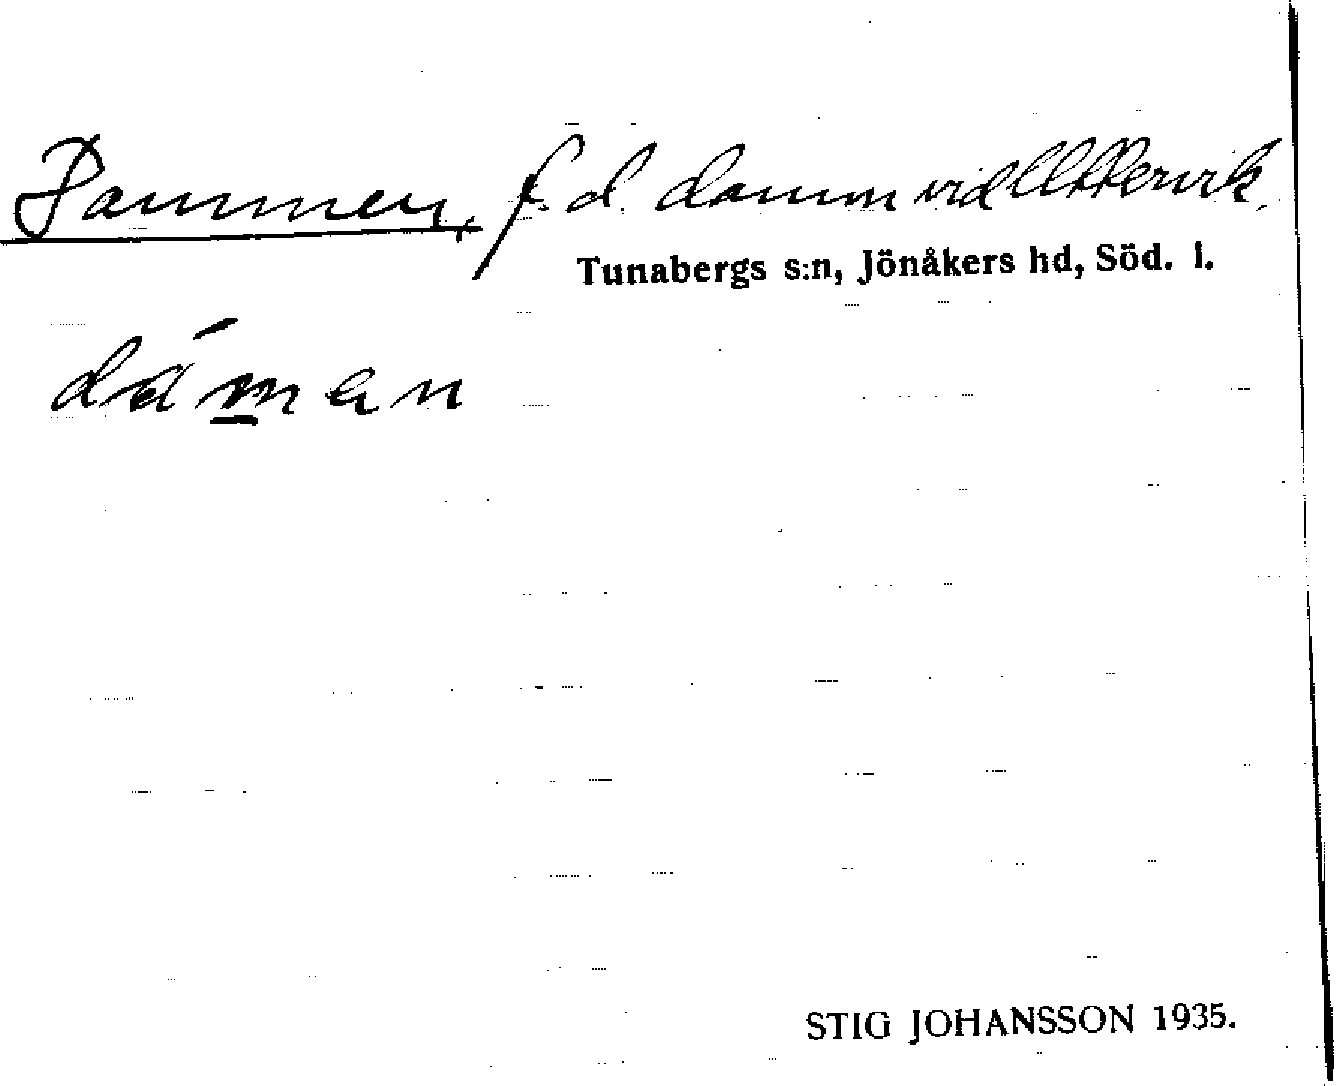 Dammen, f. d. damm vid Uttervik.
Tunabergs s:n, Jönåkers hd, Söd. l.
dámen
STIG JOHANSSON 1935.